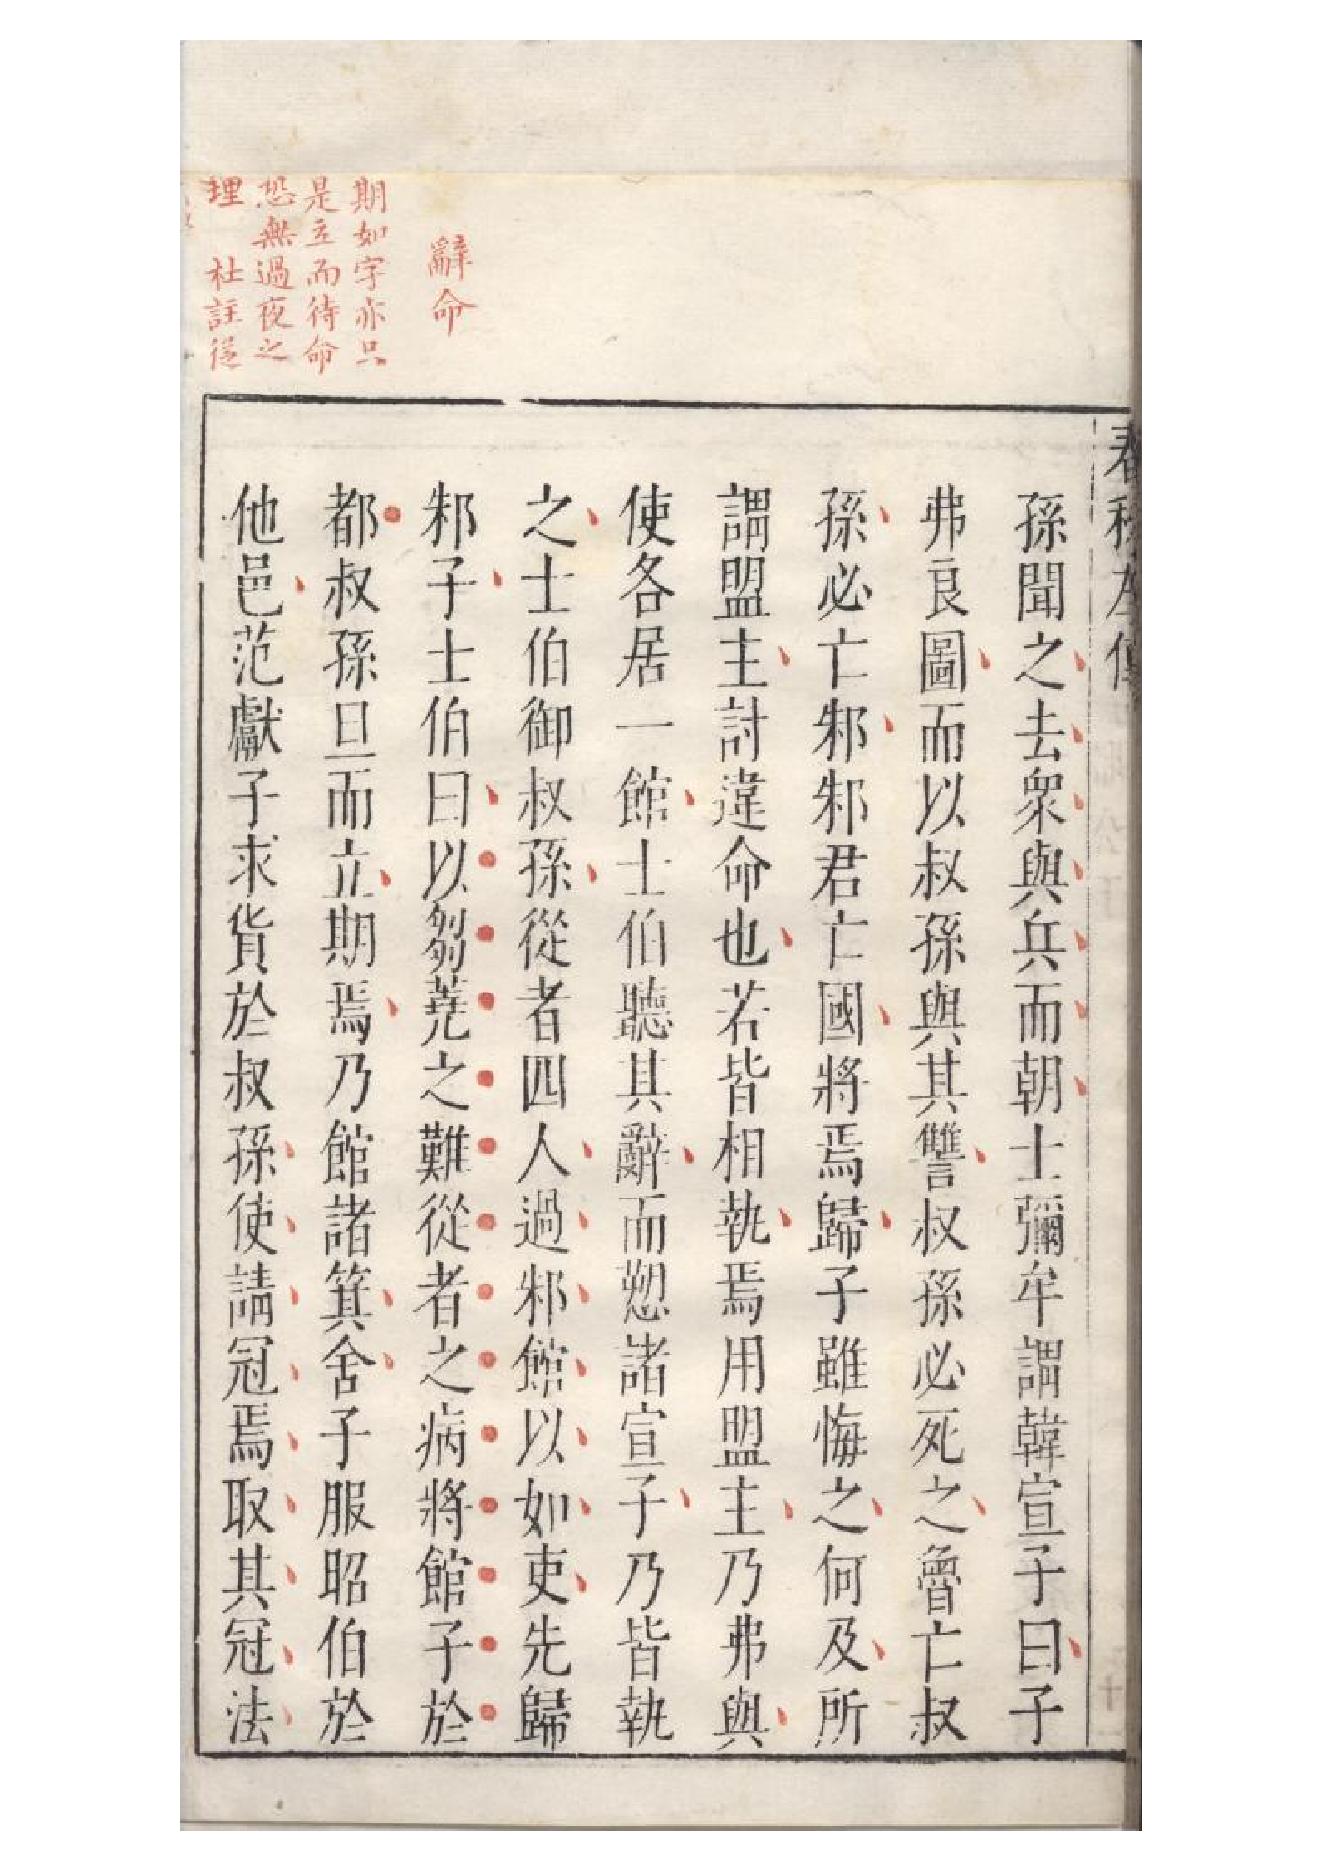 春秋左傳
孫聞之去衆與兵而朝士彌牟謂韓宣子曰子
弗良圖而以叔孫與其讐叔孫必死之魯亡叔
孫必亡邾邾君亡國將焉歸子雖悔之何及所
謂盟主討違命也若皆相執焉用盟主乃弗與
使各居一館士伯聽其辭而愬諸宣子乃皆執
之士伯御叔孫從者四人過邾館以如吏先歸
邾子士伯曰以芻蕘之難從者之病將館子於
都叔孫旦而立期焉乃館諸箕舍子服昭伯於
他邑范獻子求貨於叔孫使請冠焉取其冠法
辭命
期如字亦只
是立而待命
恐無過夜之
理 杜註從